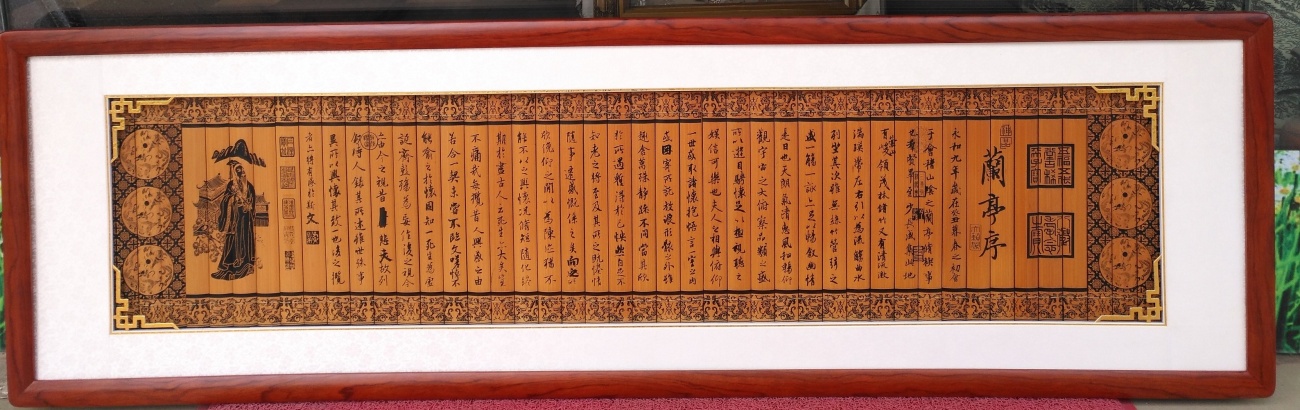 蘭亭序
永和九年歲在癸丑暮春之初會
于會稽山陰之蘭亭脩稧事
也羣賢畢至少長咸集此地
有崇山峻領茂林脩竹又有清流激
湍暎帶左右引以為流觴曲水
列坐其次雖無絲竹管弦之
盛一觴一詠亦足以暢叙幽情
是日也天朗氣清惠風和暢仰
觀宇宙之大俯察品類之盛
所以遊目騁懷足以極視聽之
娛信可樂也夫人之相與俯仰
一世或取諸懷抱悟言一室之內
或因寄所託放浪形骸之外雖
趣舍萬殊靜躁不同當其欣
於所遇暫得於己怏然自足不
知老之將至及其所之既惓情
隨事遷感慨係之矣向之所
欣俛仰之閒以為陳迹猶不
能不以之興懷況脩短隨化終
期於盡古人云死生亦大矣豈
不痛哉每攬昔人興感之由
若合一契未嘗不臨文嗟悼不
能喻之於懷固知一死生為虛
誕齊彭殤為妄作後之視今
亦由今之視昔悲夫故列
叙時人錄其所述雖世殊事
異所以興懷其致一也後之攬
者亦將有感於斯文